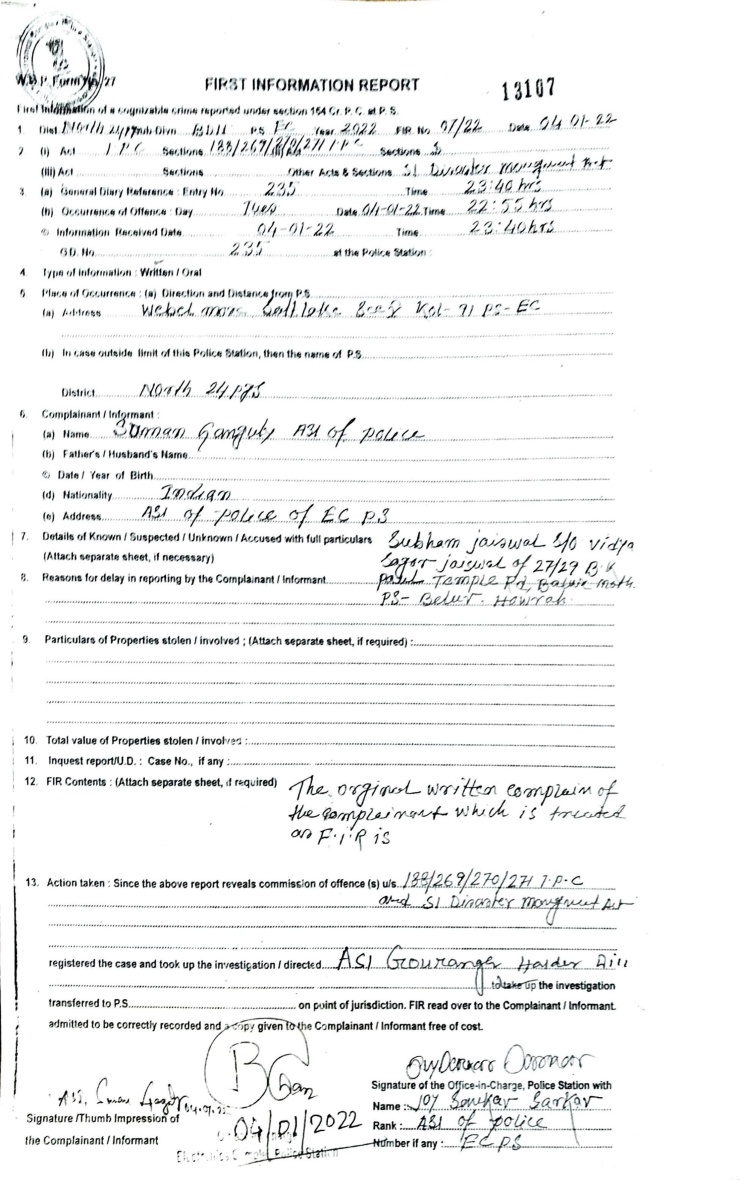 W.B.P. Form No. 27
FIRST INFORMATION REPORT
13107
First Information of a cognizable crime reported under section 154 Cr. P. C. at P. S.
1. Dist. North 24 Pgs Sub Divn. BDN P.S. EC Year 2022 FIR No. 07/22 Date 04 01-22
2. (i) Act I P C Sections 188/269/270/271 I.P.C Sections
(iii) Act Sections Other Acts & Sections 51 Disaster Mangment Act
3. (a) General Diary Reference : Entry No. 235 Time 23:40 hrs
(b) Occurrence of Offence : Day Tues Date 04-01-22 Time 22:55 hrs
© Information Received Date 04-01-22 Time 23:40 hrs
GD. No. 235 at the Police Station :
4. Type of information : Written / Oral
5. Place of Occurrence : (a) Direction and Distance from P.S.
(a) Address Webel more, Salt lake Sec-V Kol- 91 PS- EC
(b) In case outside limit of this Police Station, then the name of P.S.
District North 24 PGS
6. Complainant / Informant :
(a) Name Suman Ganguly ASI of police
(b) Father's / Husband's Name
© Date / Year of Birth
(d) Nationality Indian
(e) Address ASI of police of EC PS
7. Details of Known / Suspected / Unknown / Accused with full particulars Subham jaiswal S/O Vidya
(Attach separate sheet, if necessary) Sagar jaiswal of 27/29 B.K
8. Reasons for delay in reporting by the Complainant / Informant Paul Temple Rd, Math
PS- Belur. Howrah
9. Particulars of Properties stolen / involved ; (Attach separate sheet, if required) :
10. Total value of Properties stolen / involved :
11. Inquest report/U.D. : Case No., if any :
12. FIR Contents : (Attach separate sheet, if required) The orginal written complain of
the complainant which is treated
as F.I.R is
13. Action taken : Since the above report reveals commission of offence (s) u/s. 188/269/270/271 I.P.C
and 51 Disaster Mongment Act
registered the case and took up the investigation / directed ASI Gouranga Halder
to take up the investigation
transferred to P.S. on point of jurisdiction. FIR read over to the Complainant / Informant.
admitted to be correctly recorded and a copy given to the Complainant / Informant free of cost.
Signature of the Office-in-Charge, Police Station with
Name : Joy Sankar Sarkar
Signature /Thumb Impression of
Rank : ASI of police
04/01/2022
the Complainant / Informant
Number if any : EC PS
Electronics Complex Police Station